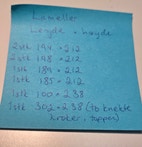 Lameller
Lengde × høyde
2stk 144 × 212
2stk 148 × 212
1stk 184 × 212
1stk 185 × 212
1stk 100 × 238
1stk 302 × 238 (to knekte
kroker, toppen)